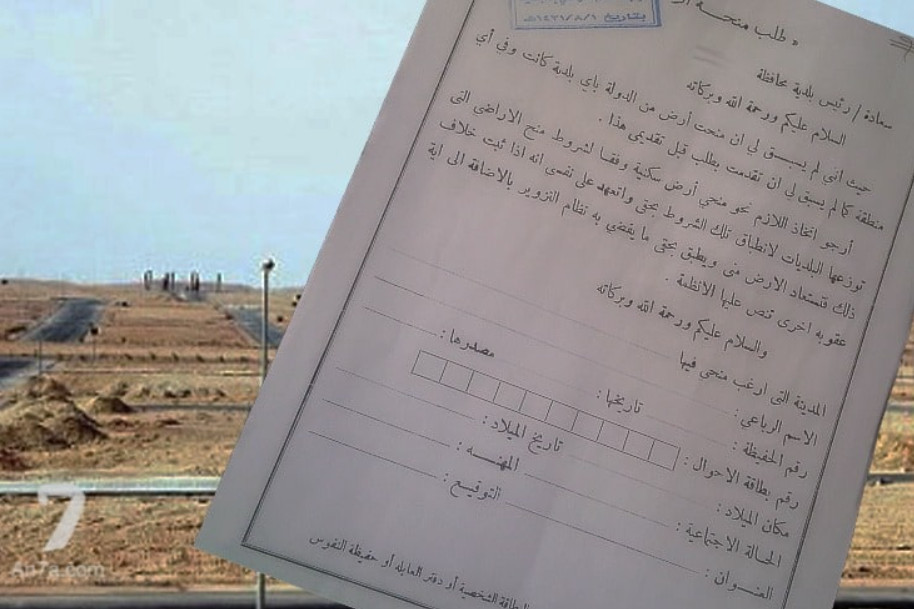 بتاريخ ١٤٣١/٨/١هـ
« طلب منحــة
سعادة / رئيس بلدية محافظة
السلام عليكم ورحمة الله وبركاته
حيث اني لم يسبق لي ان منحت أرض من الدولة باي بلدية كانت وفي أي
منطقة كما لم يسبق لي ان تقدمت بطلب قبل تقديمي هذا .
أرجو اتخاذ اللازم نحو منحي أرض سكنية وفقا لشروط منح الاراضي التي
توزعها البلديات لانطباق تلك الشروط بحقي واتعهد على نفسي انه اذا ثبت خلاف
ذلك فتستعاد الارض مني ويطبق بحقي ما يقضي به نظام التزوير بالاضافة الى اية
عقوبه اخرى تنص عليها الانظمة .
والسلام عليكم ورحمة الله وبركاته
المدينة التي ارغب منحي فيها
الاسم الرباعي :
رقم الحفيظة : تاريخها : مصدرها :
رقم بطاقة الاحوال :
مكان الميلاد : تاريخ الميلاد :
الحالة الاجتماعية : المهنــه :
العنــوان : التوقيع :
البطاقة الشخصية أو دفتر العايلة أو حفيظة النفوس
7
An7a.com